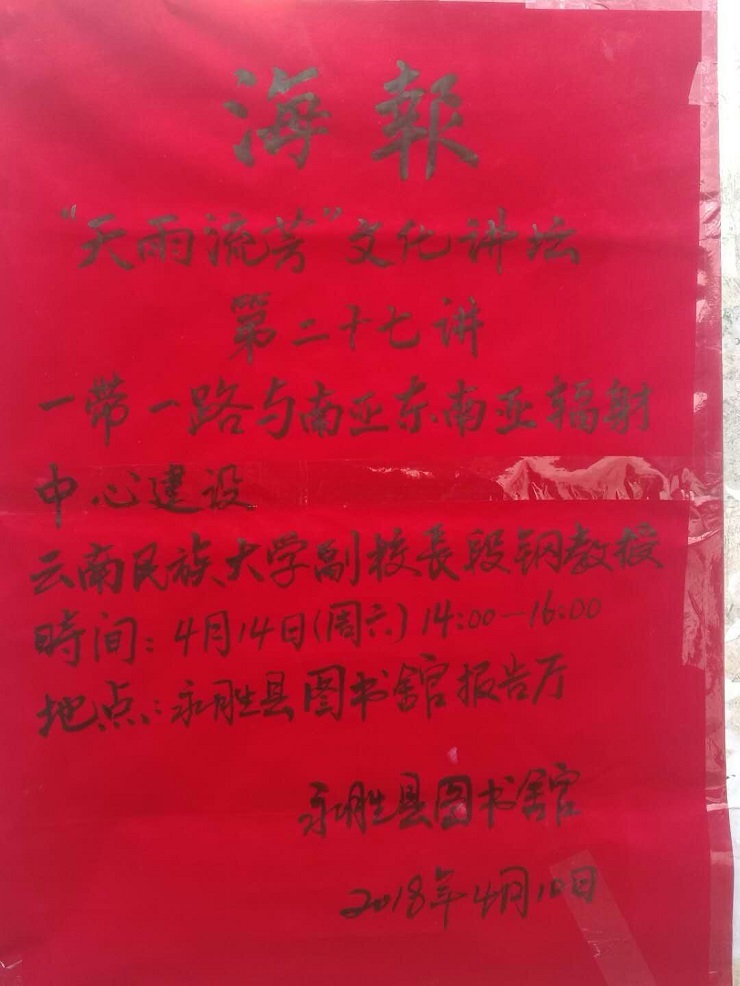 海報
“天雨流芳”文化讲坛
第二十七讲
一带一路与南亚东南亚辐射
中心建设
云南民族大学副校長段钢教授
時间：4月14日(周六)14:00—16:00
地点：永胜县图书舘报告厅
永胜县图书舘
2018年4月10日